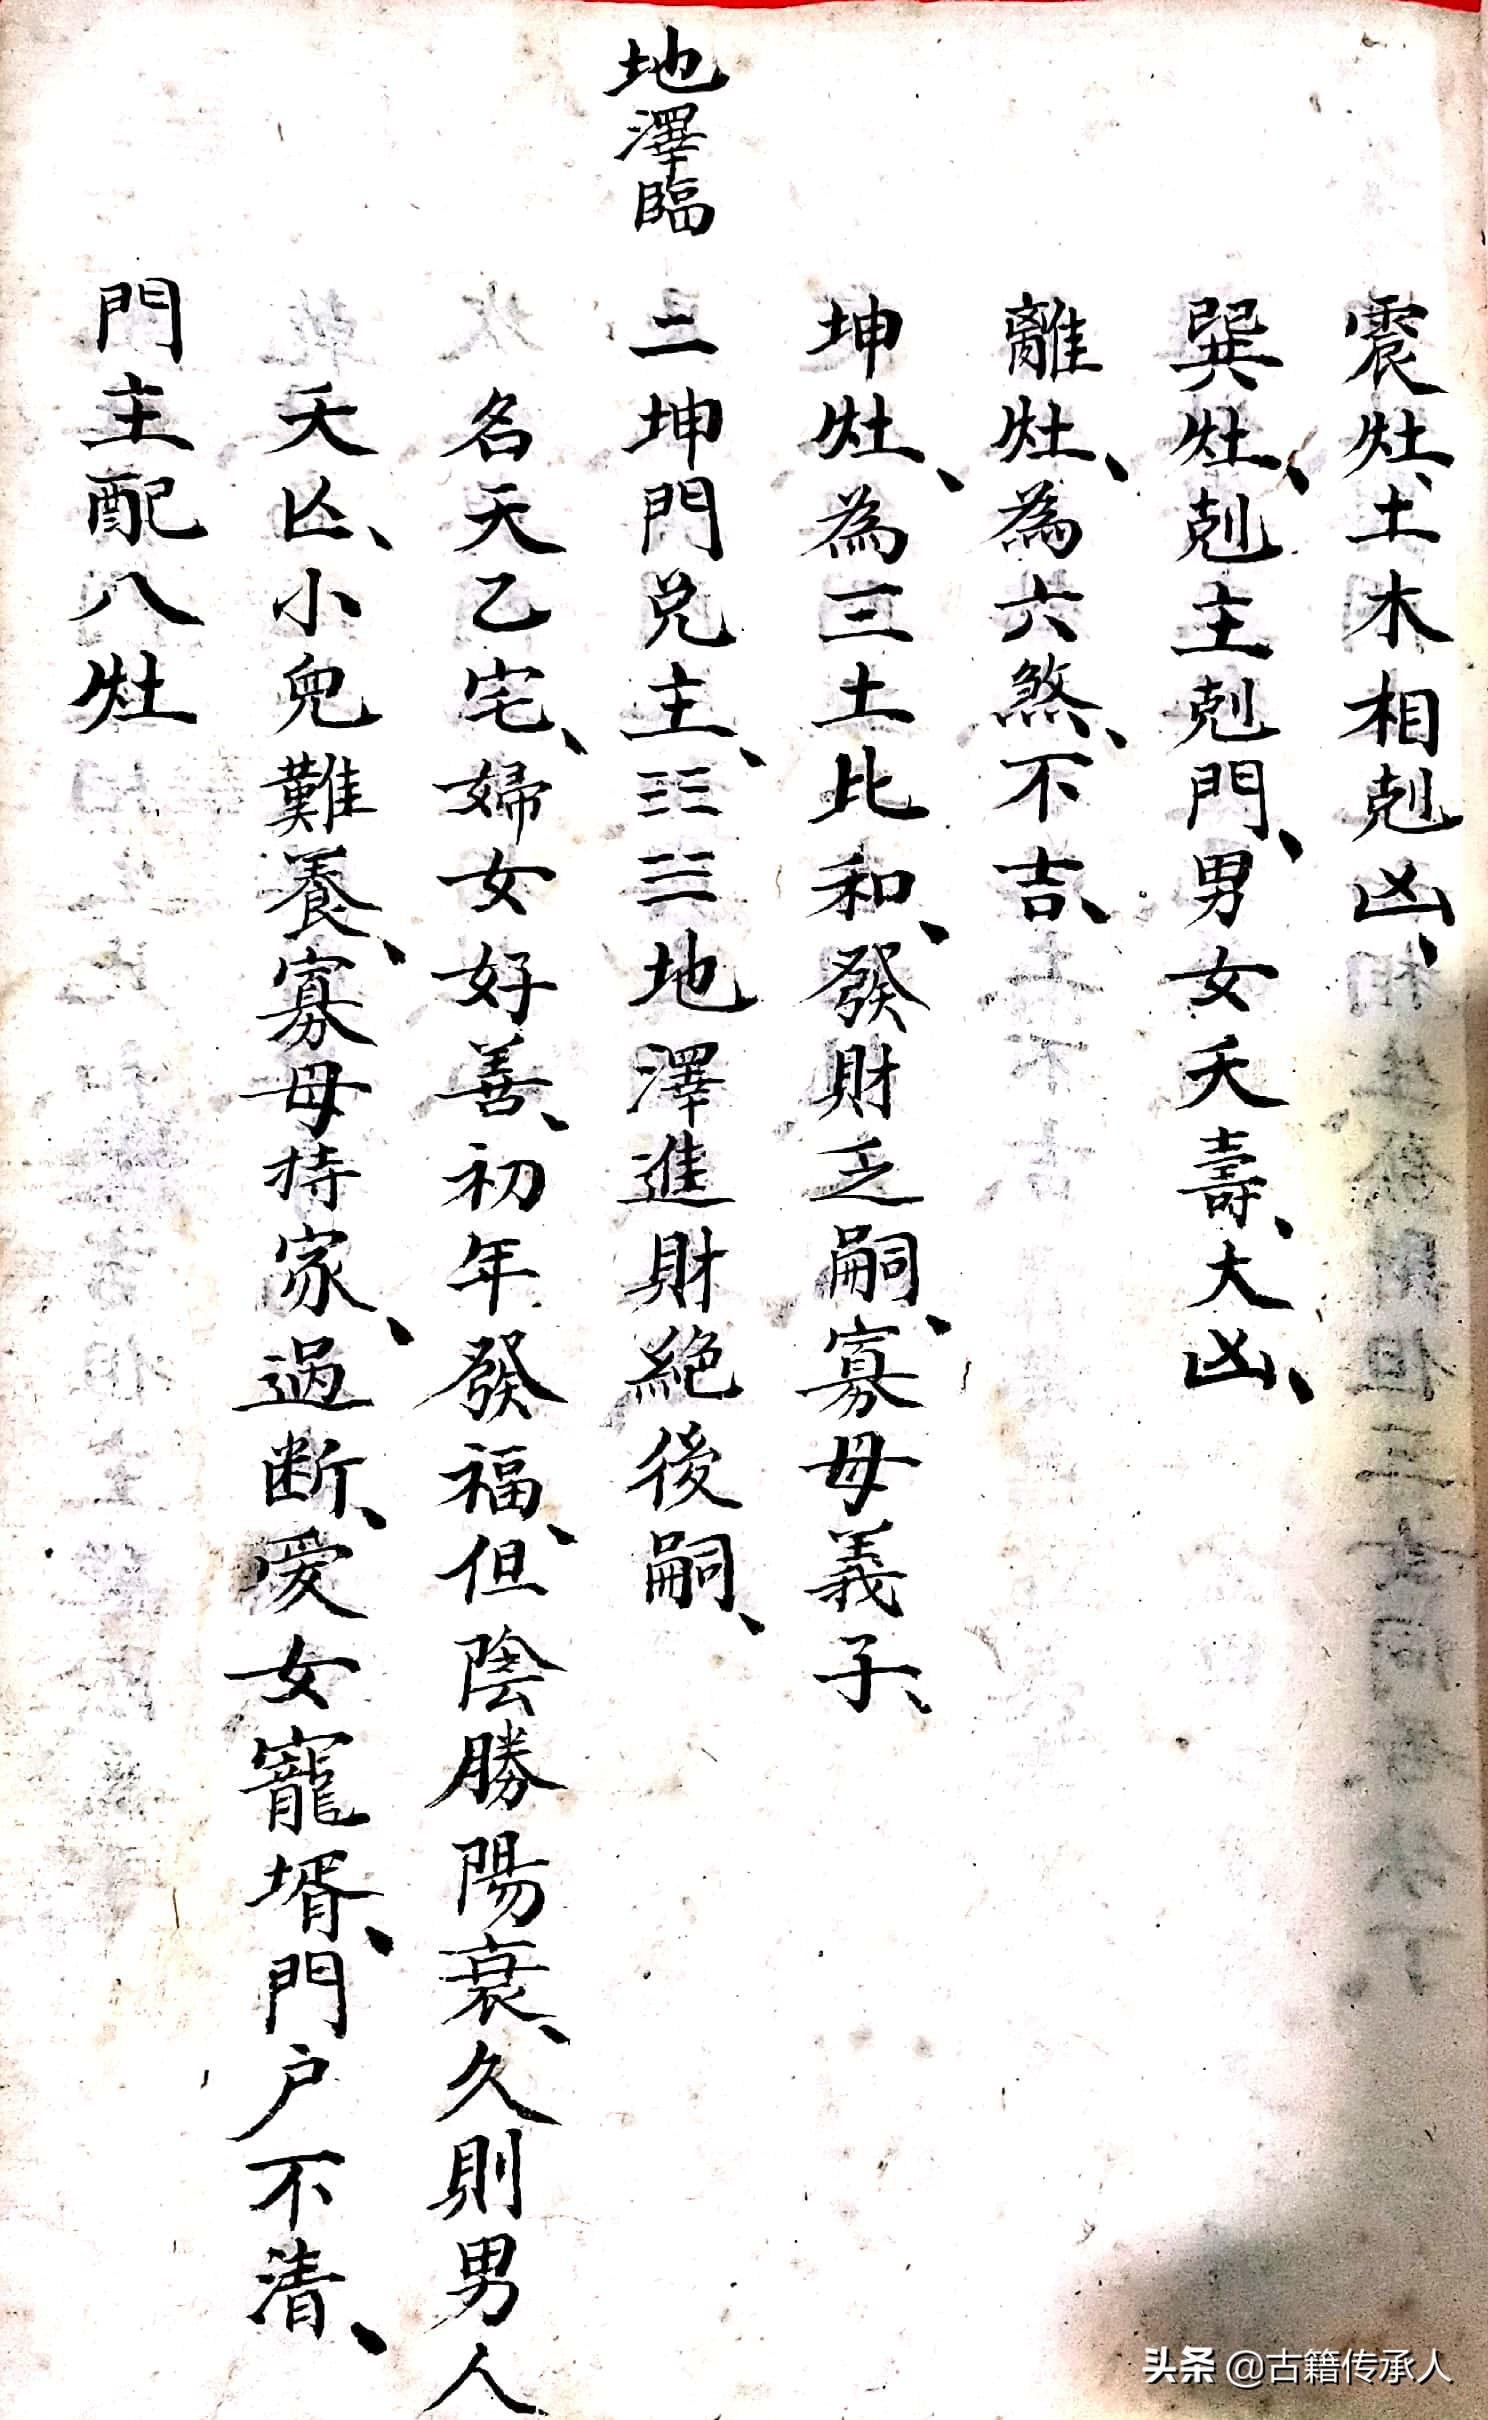 震灶、土木相剋凶、
巽灶、剋主剋門、男女夭壽、大凶、
離灶、為六煞、不吉、
坤灶、為三土比和、發財乏嗣、寡母義子、
地澤臨
二坤門兌主、☷☱地澤進財絕後嗣、
名天乙宅、婦女好善、初年發福、但陰勝陽衰、久則男人
夭亾、小兒難養、寡母持家、過断、愛女寵壻、門户不清、
門主配八灶
头条 @古籍传承人